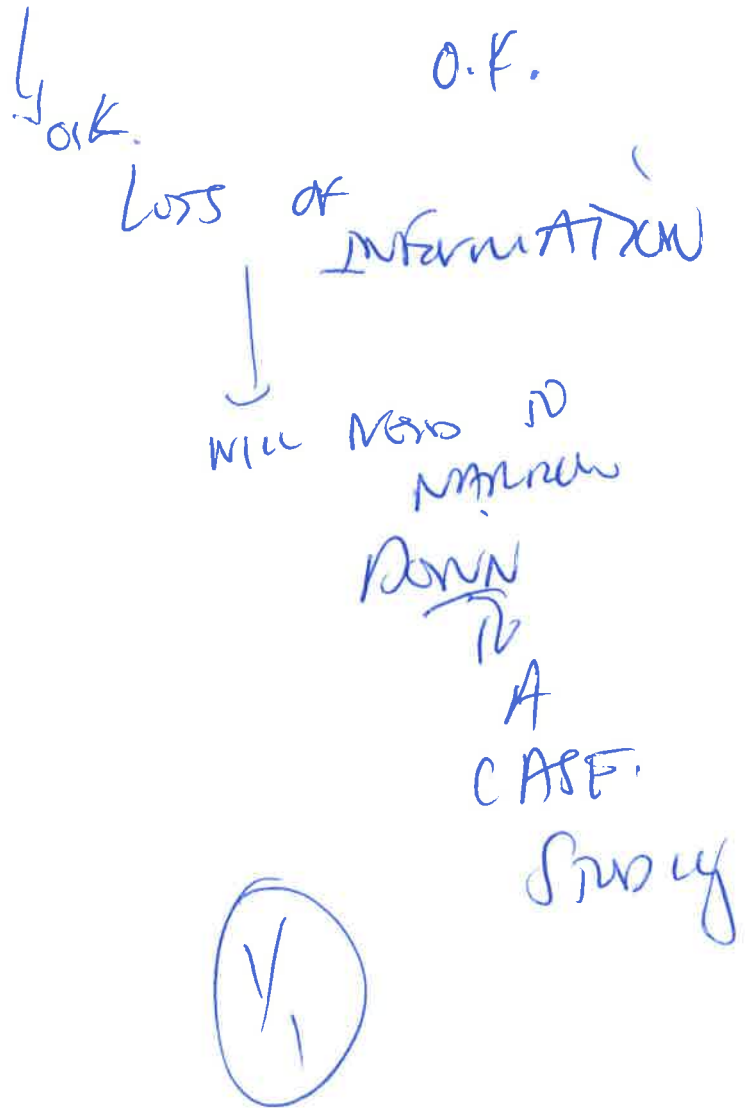 O.K.
O.K.
LOSS OF
INFORMATION
WILL NEED TO
NARROW
DOWN
TO
A
CASE.
STUDY